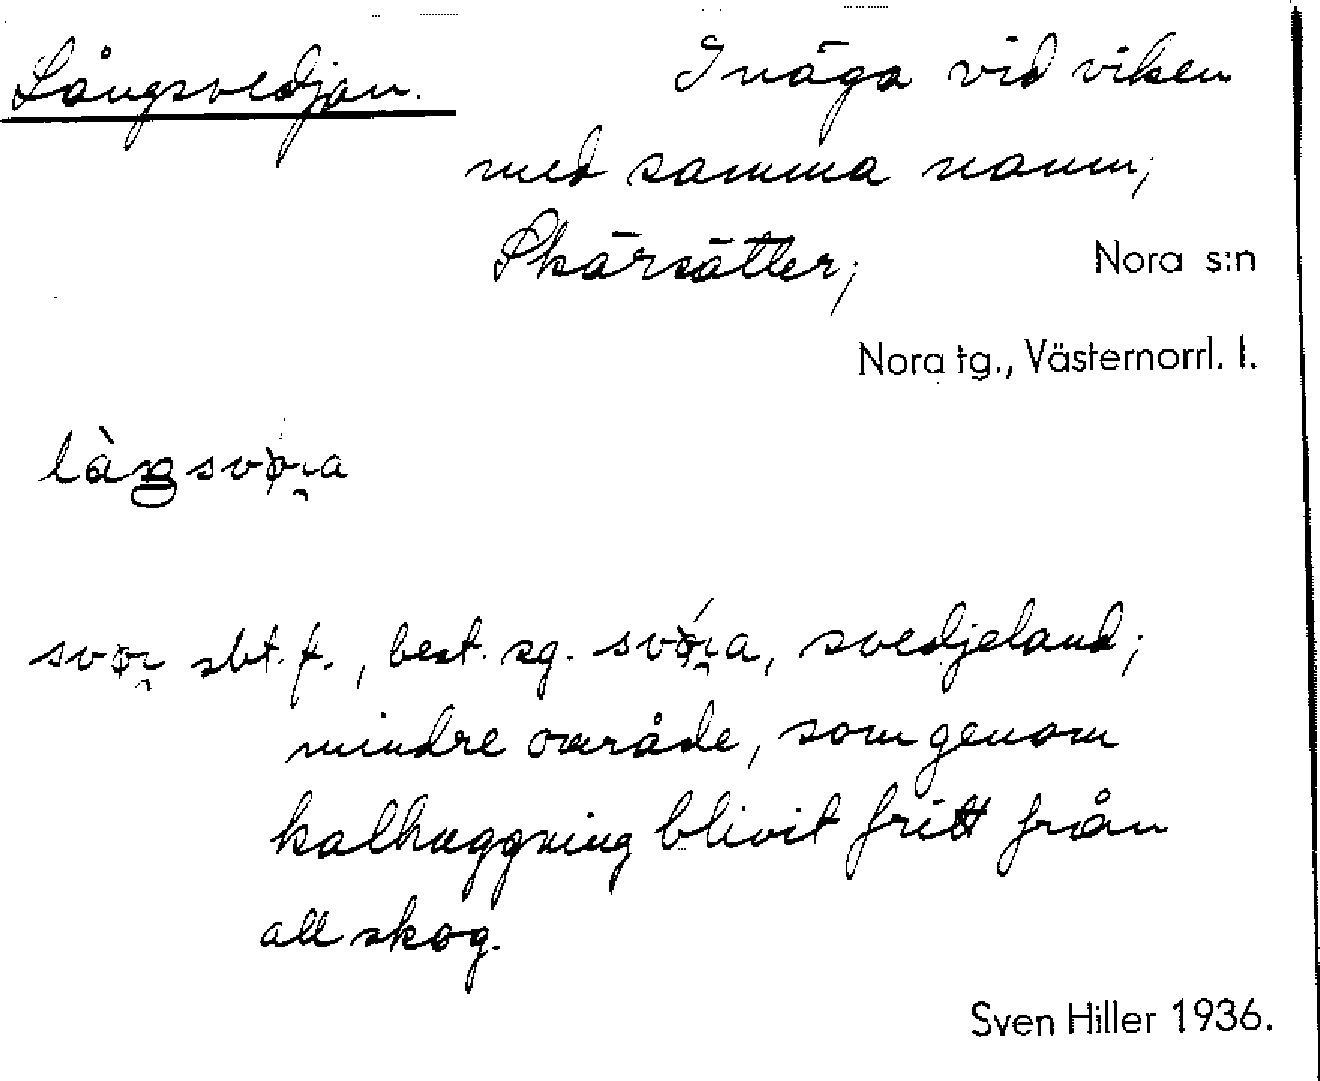 Långsvedjan. Inäga vid viken
med samma namn;
Skärsätter; Nora s:n
Nora tg., Västernorrl. l.
sbt. f., best. sg. svedjeland;
mindre område, som genom
kalhuggning blivit fritt från
all skog.
Sven Hiller 1936.